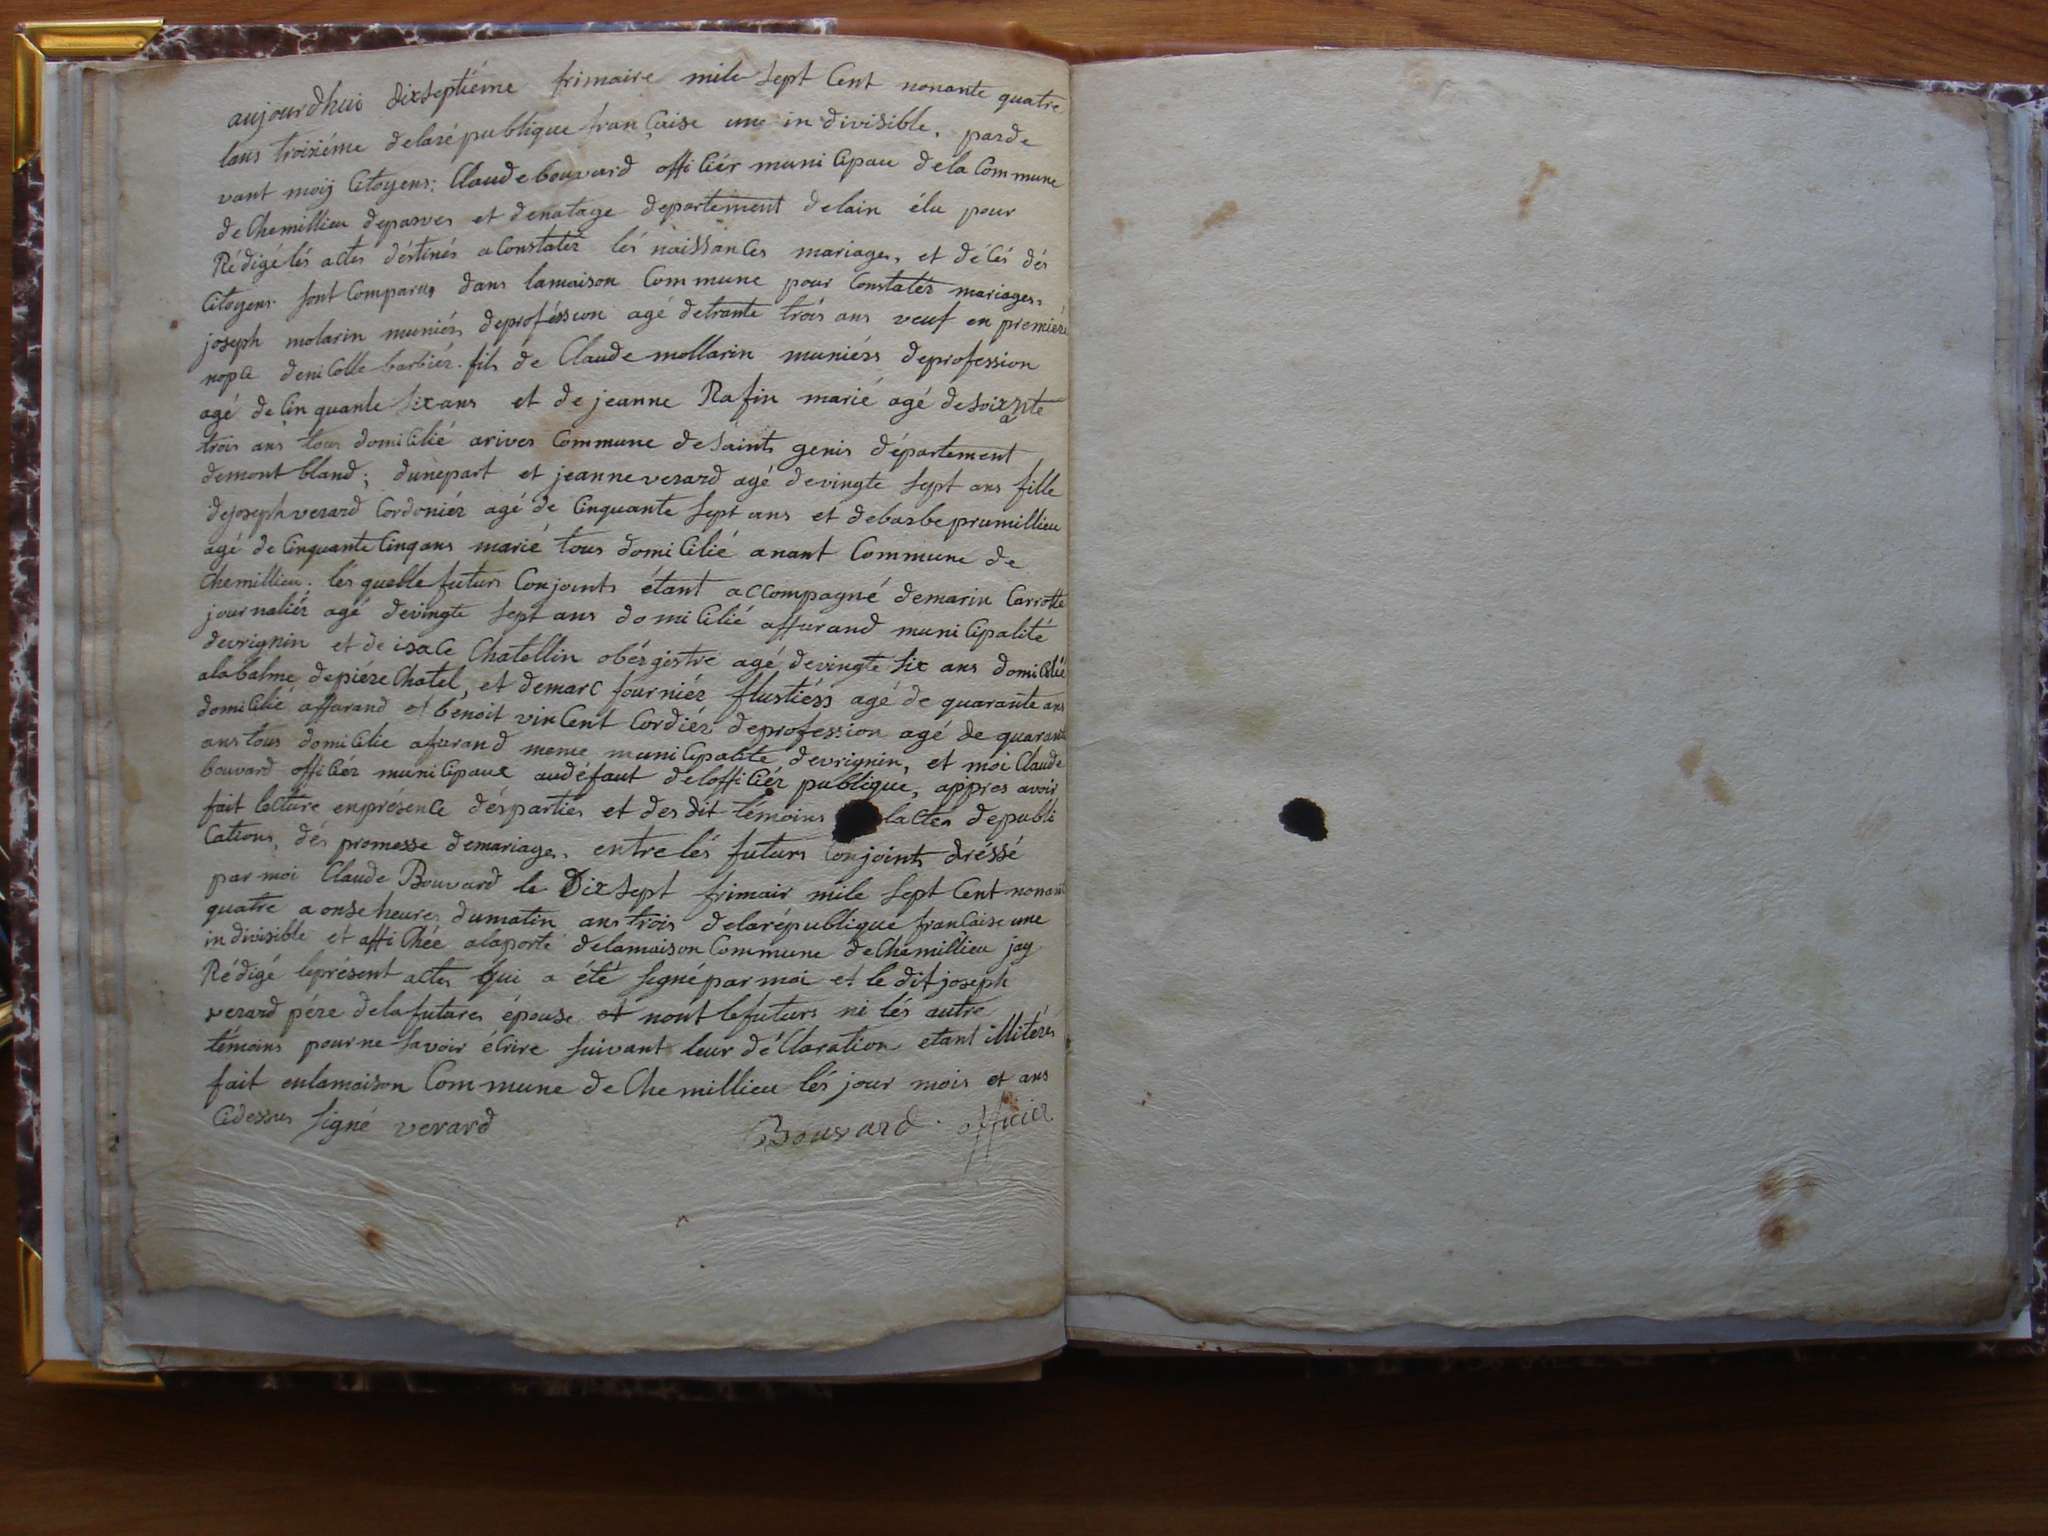 aujourdhui dixseptiéme frimaire mile sept Cent nonante quatre
lans troixiéme delarépublique française une indivisible, parde
vant moij Citoyens; Claude bouvard officiér municipau dela Commune
de Chemillieu deparves et denatage departement delain élu pour
Rédigé lés actes déstinés a Constatér lés naissances mariages, et décés dés
Citoyens sont Comparus dans lamaison Commune pour Constatér mariages,
joseph molarin muniérs deproféssion agé detrante trois ans veuf en premiere
nopce deniColle barbiér. fils de Claude mollarin muniérs deprofession
agé de Cinquante six ans et de jeanne Rafin marié agé de soixante
trois ans tous domicilié arives Commune desaints genis département
demont bland; dunepart et jeanne verard agé devingte sept ans fille
dejoseph verard Cordoniér agé de Cinquante sept ans et debarbe prumillieu
agé de Cinquante Cinq ans marié tous domicilié anant Commune de
Chemillieu. lés quelle futurs Conjoints étant accompagné demarin Carrotte
journaliér agé devingte sept ans domicilié affurand municipalité
devrignin et de isace Chatellin obérgistre agé devingte six ans domicilié
alabalme depiére Chatel, et demarc fourniér flustiérs agé de quarante ans
domicilié affurand et benoit vincent Cordiér deprofession agé de quarante
ans tous domicilie afurand meme municipalite devrignin, et moi Claude
bouvard officiér municipaue audéfaut delofficiér publique, appres avoir
fait lecture enprésence désparties et des dit témoins lactes depubli
Cations, dés promesse demariages. entre lés futurs Conjoints dréssé
par moi Claude Bouvard le Dix sept frimair mile sept Cent nonante
quatre a onse heures dumatin ans trois delarépublique française une
indivisible et affichée alaporte delamaison Commune de Chemillieu jay
Rédigé leprésent actes qui a été signé par moi et le dit joseph
verard pére delafutares épouse et nont lefuturs ni lés autre
témoins pour ne savoir écrire suivant leur déclaration etant illiterés
fait enlamaison Commune de Chemillieu lés jour mois et ans
Cidessus signé verard Bouvard officier